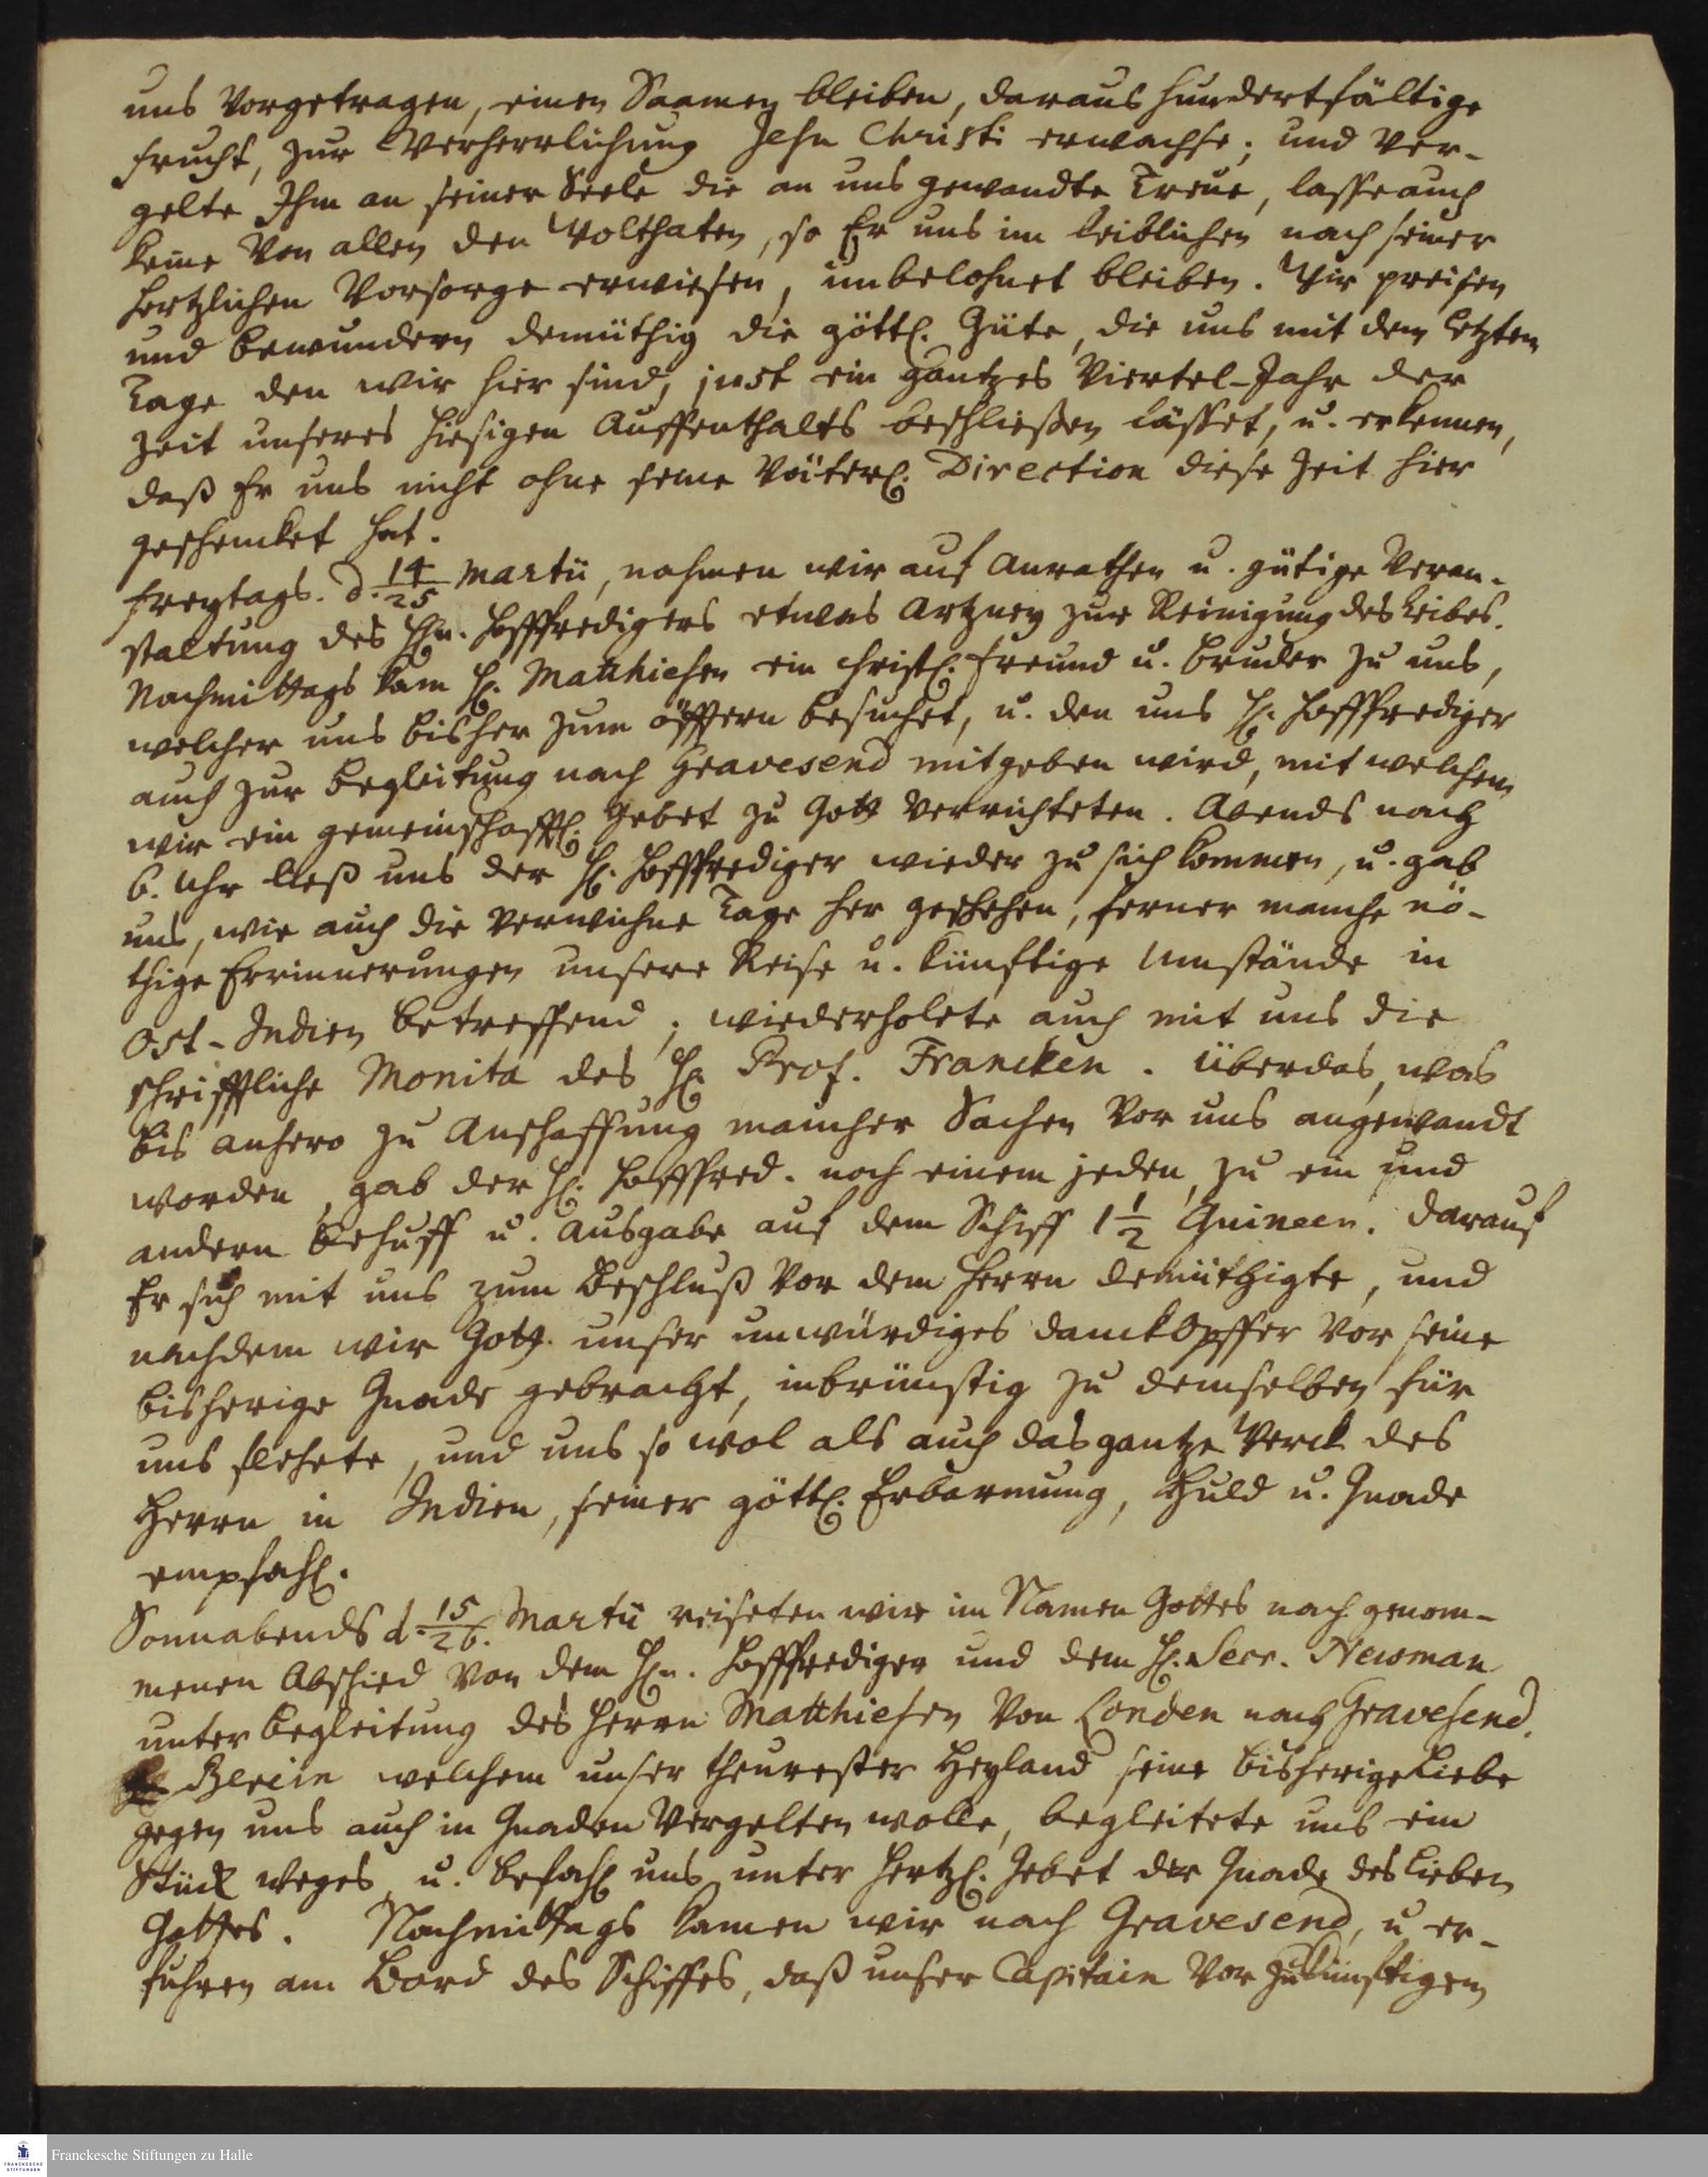 uns vorgetragen, einen Saamen bleiben, daraus hundertfältige
frucht, zur Verherrlichung Jesu Christi erwachse; und ver-
gelte Ihm an seiner Seele die an uns gewandte Treue, lasse auch
keine von allen den Wolthaten, so Er uns im leiblichen nach seiner
hertzlichen Vorsorge erwiesen, unbelohnet bleiben. Wir preisen
und bewundern demüthig die göttl. Güte, die uns mit dem letzten
Tage den wir hier sind, just ein gantzes Viertel-Jahr der
Zeit unseres hiesigen Auffenthalts beschließen lässet, u. erkennen,
daß Er uns nicht ohne seine Väterl. Direction diese Zeit hier
geschencket hat.
Freytags. d. 14/25 Martii, nahmen wir auf Anrathen u. gütige Veran-
staltung des Hhn. Hoffpredigers etwas Artzney zur Reinigung des Leibes.
Nachmittags kam H. Matthiesen ein christl. Freund u. Bruder zu uns,
welcher uns bisher zum öfftern besuchet, u. den uns H. Hoffprediger
auch zur Begleitung nach Gravesend mitgeben wird, mit welchem
wir ein gemeinschafftl. Gebet zu Gott verrichteten. Abends nach
6. Uhr ließ uns der H. Hoffprediger wieder zu sich kommen, u. gab
uns, wie auch die verwichne Tage her geschehen, ferner manche nö-
thige Errinnerungen unsere Reise u. künftige Umstände in
Ost-Indien betreffend; wiederholete auch mit uns die
schrifftliche Monita des H. Prof. Francken. Überdas, was
bis anhero zu Anschaffung mancher Sachen vor uns angewandt
worden, gab der H. Hoffpred. noch einem jeden, zu ein und
andern Behuff u. Ausgabe auf dem Schiff 1 1/2 Guineen. Darauf
Er sich mit uns zum Beschluß vor dem Herrn demüthigte, und
nachdem wir Gott unser unwürdiges Danckopffer vor seine
bisherige Gnade gebracht, inbrünstig zu demselben für
uns flehete, und uns so wol als auch das gantze Werck des
Herrn in Indien, seiner göttl. Erbarmung, Huld u. Gnade
empfahl.
Sonnabends d. 15/26. Martii reiseten wir im Namen Gottes nach genom-
menen Abschied von dem Hn. Hoffprediger und dem H. Secr. Newman
unter Begleitung des Herrn Matthiesen von Londen nach Gravesend.
welchem unser theurester Heyland seine bisherige Liebe
gegen uns auch in Gnaden vergelten wolle, begleitete uns ein
Stück weges, u. befahl uns unter hertzl. Gebet der Gnade des lieben
Gottes. Nachmittags kamen wir nach Gravesend, u er-
fuhren am Bord des Schiffes, daß unser Capitain vor zukünftigem
Franckesche Stiftungen zu Halle